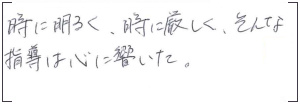 時に明るく、時に厳しく、そんな
指導は心に響いた。